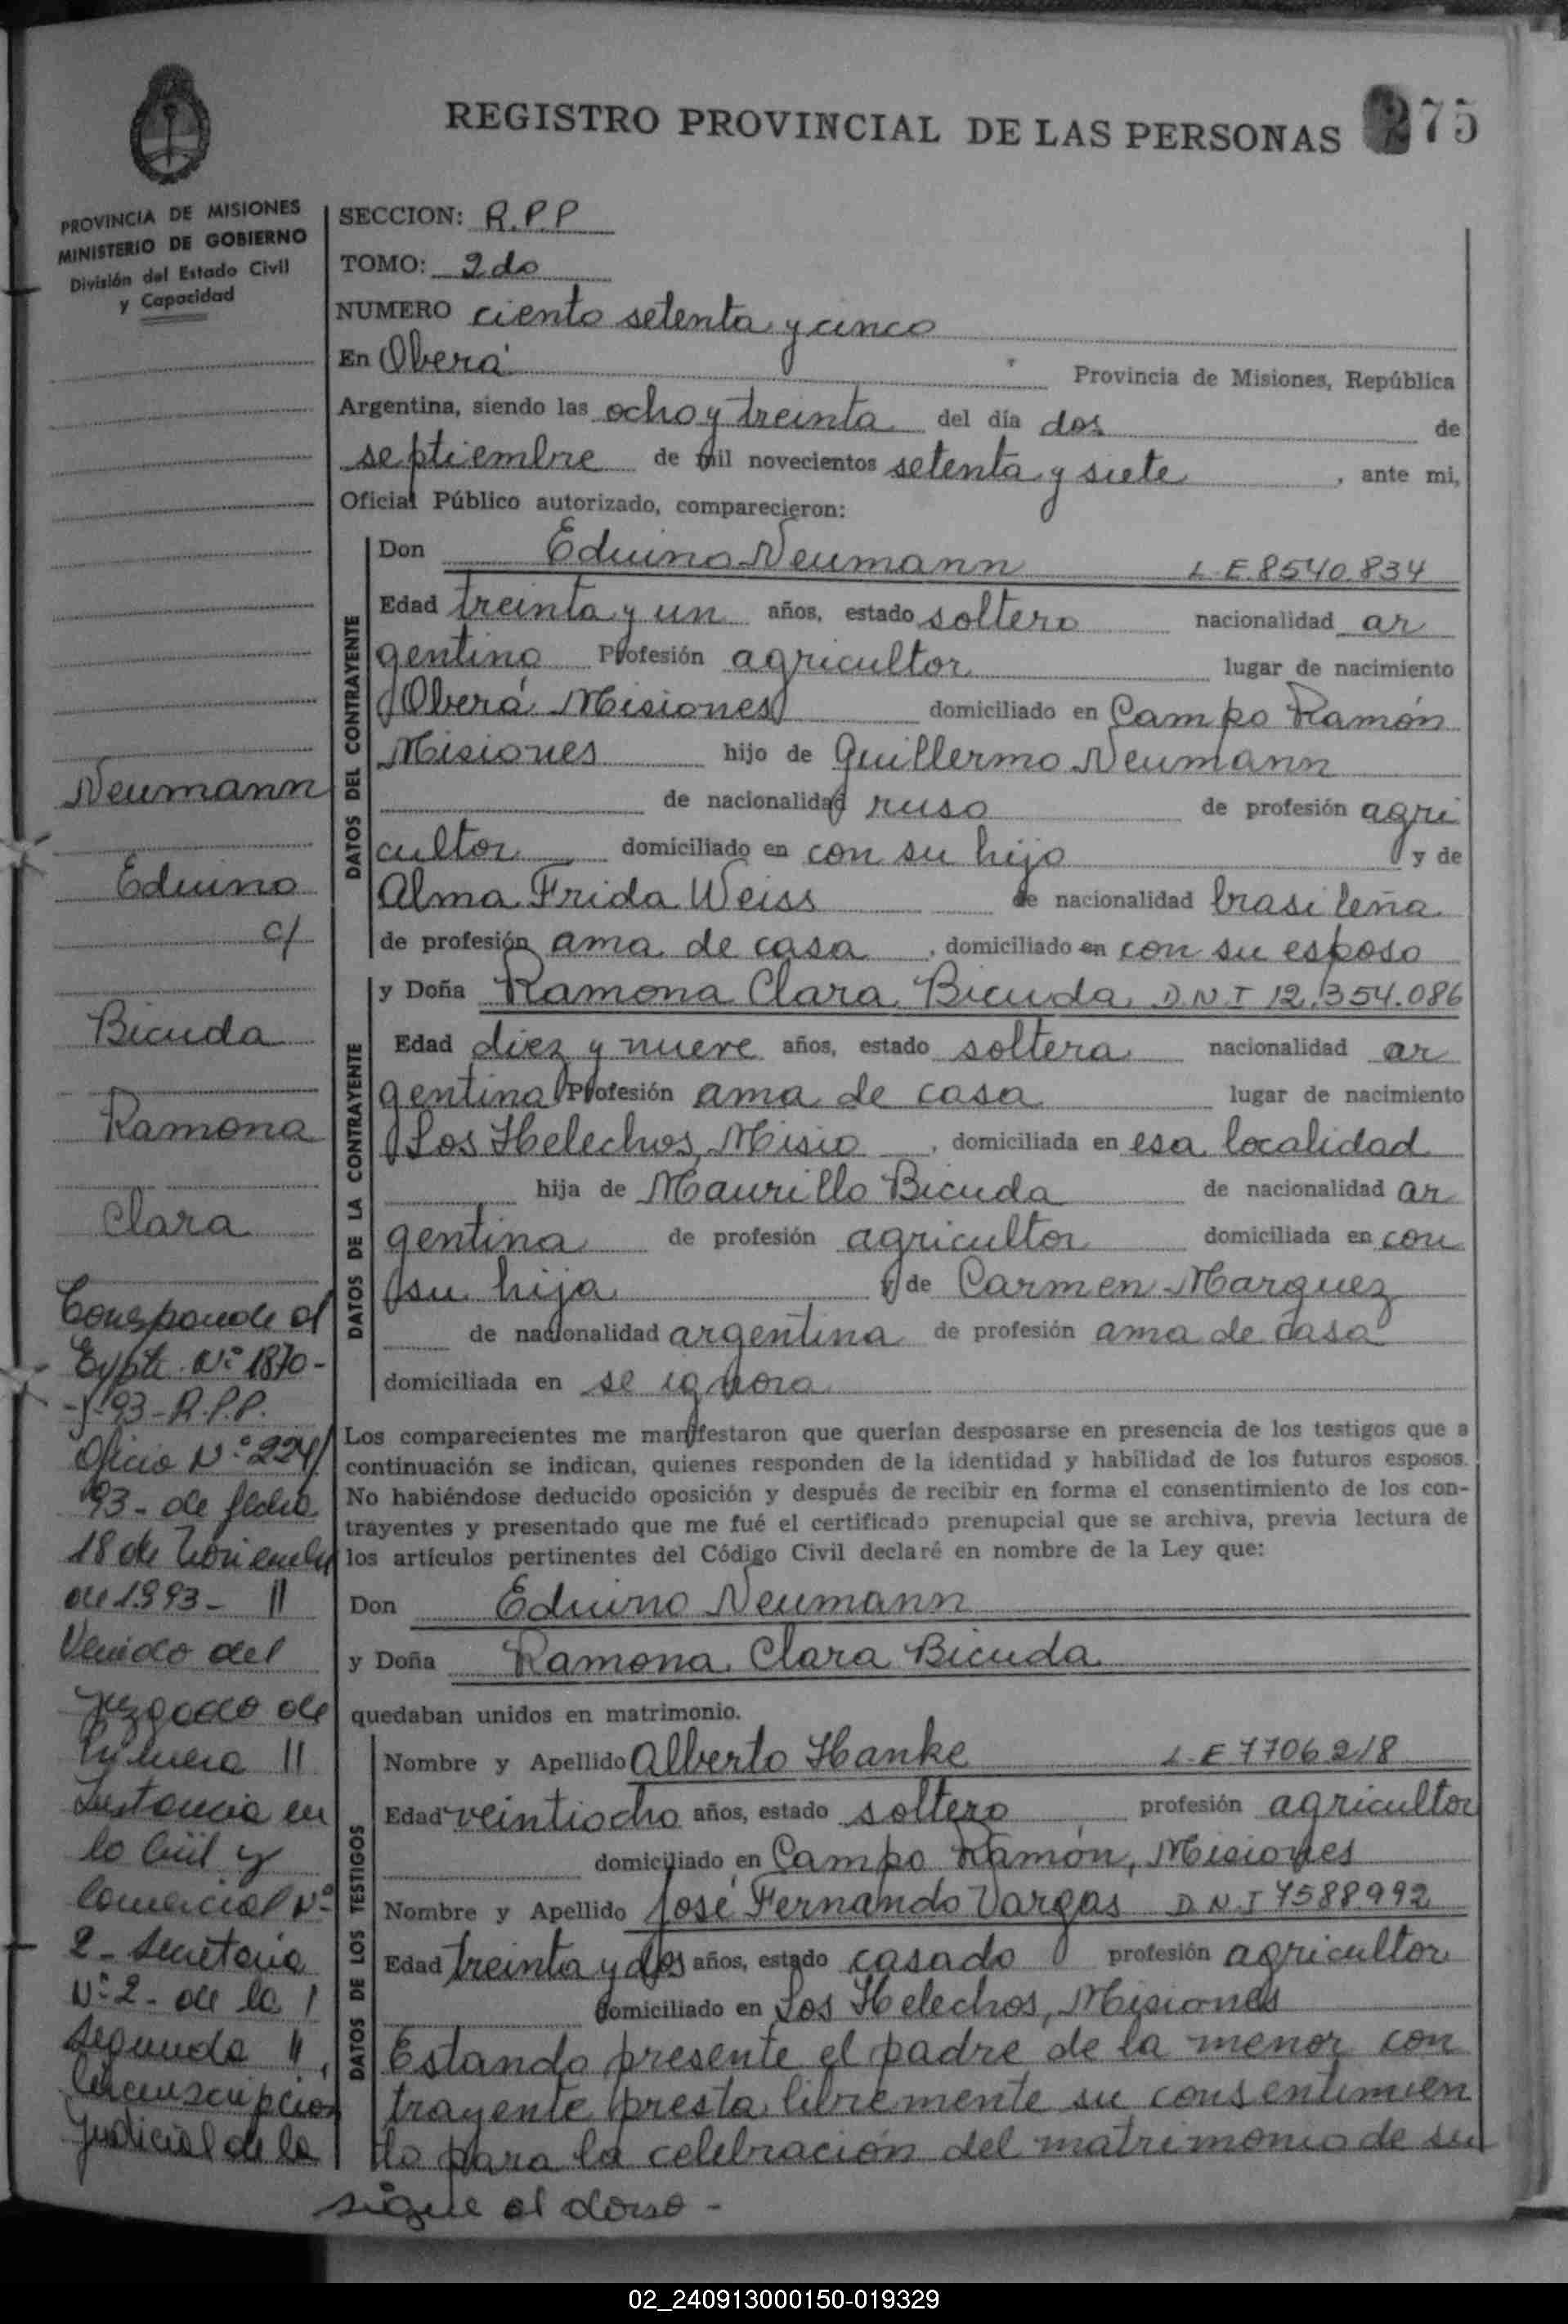 REGISTRO PROVINCIAL DE LAS PERSONAS 275
PROVINCIA DE MISIONES
MINISTERIO DE GOBIERNO
División del Estado Civil
y Capacidad
SECCION: R.P.P
TOMO: 2do
NUMERO ciento setenta y cinco
En Oberá Provincia de Misiones, República
Argentina, siendo las ocho y treinta del día dos de
septiembre de mil novecientos setenta y siete, ante mi,
Oficial Público autorizado, comparecieron:
DATOS DEL CONTRAYENTE
Don Eduino Neumann L.E. 8540.834
Edad treinta y un años, estado soltero nacionalidad ar
gentino Profesión agricultor lugar de nacimiento
Oberá Misiones domiciliado en Campo Ramón
Misiones hijo de Guillermo Neumann
de nacionalidad ruso de profesión agri
cultor domiciliado en con su hijo y de
Alma Frida Weiss de nacionalidad brasileña
de profesión ama de casa, domiciliado en con su esposo
DATOS DE LA CONTRAYENTE
y Doña Ramona Clara Bicuda D.N.I 12.354.086
Edad diez y nueve años, estado soltera nacionalidad ar
gentina Profesión ama de casa lugar de nacimiento
Los Helechos, Misio, domiciliada en esa localidad
hija de Maurillo Bicuda de nacionalidad ar
gentina de profesión agricultor domiciliada en con
su hija y de Carmen Marquez
de nacionalidad argentina de profesión ama de casa
domiciliada en se ignora
Los comparecientes me manifestaron que querían desposarse en presencia de los testigos que a
continuación se indican, quienes responden de la identidad y habilidad de los futuros esposos.
No habiéndose deducido oposición y después de recibir en forma el consentimiento de los con-
trayentes y presentado que me fué el certificado prenupcial que se archiva, previa lectura de
los artículos pertinentes del Código Civil declaré en nombre de la Ley que:
Don Eduino Neumann
y Doña Ramona Clara Bicuda
quedaban unidos en matrimonio.
DATOS DE LOS TESTIGOS
Nombre y Apellido Alberto Hanke L.E 7706218
Edad veintiocho años, estado soltero profesión agricultor
domiciliado en Campo Ramón, Misiones
Nombre y Apellido José Fernando Vargas D.N.I 7588992
Edad treinta y dos años, estado casado profesión agricultor
domiciliado en Los Helechos, Misiones
Estando presente el padre de la menor con
trayente presta libremente su consentimien
to para la celebración del matrimonio de su
sigue al dorso -
Neumann
Eduino
c/
Bicuda
Ramona
Clara
Corresponde al
Expte. Nº 1870-
93-R.P.P.
Oficio Nº 224/
93- de fecha
18 de Noviembre
de 1993- //
Venido del
juzgado de
Primera //
Instancia en
lo Civil y
Comercial Nº
2- Secretaria
Nº 2- de la
Segunda //
Circunscripcion
Judicial de la
02_240913000150-019329